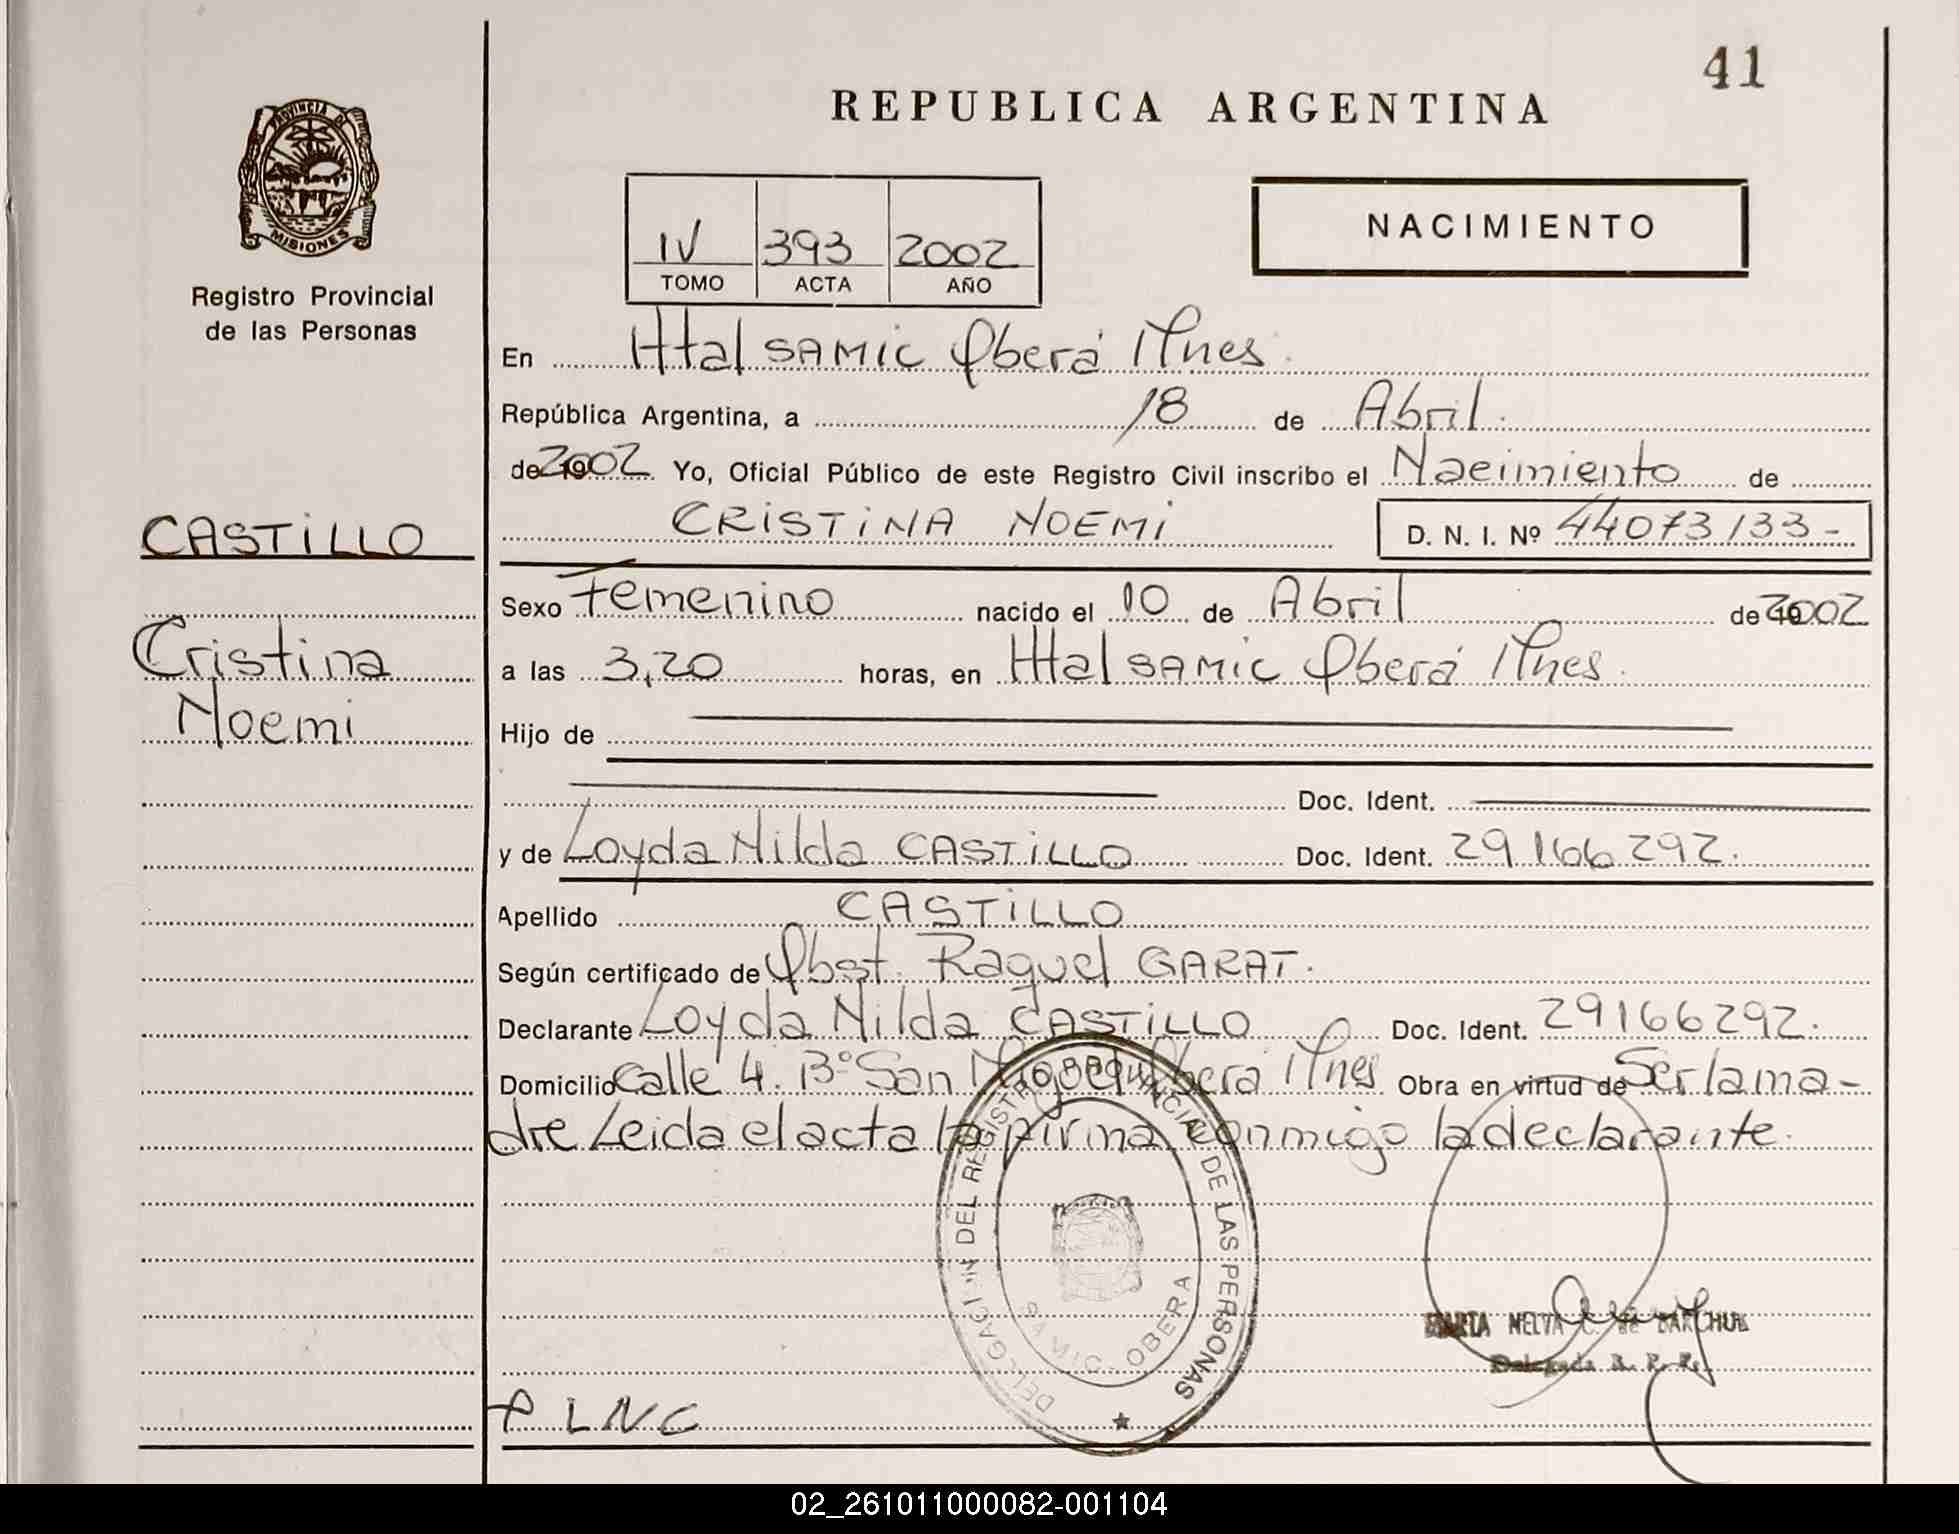 41
REPUBLICA ARGENTINA
PROVINCIA DE
MISIONES
Registro Provincial
de las Personas
IV 393 2002
TOMO ACTA AÑO
NACIMIENTO
En Htal SAMIC Oberá Mnes.
República Argentina, a 18 de Abril.
de 2002 Yo, Oficial Público de este Registro Civil inscribo el Nacimiento de
CASTILLO
CRISTINA NOEMI D. N. I. Nº 44073133-
Sexo Femenino nacido el 10 de Abril de 2002
Cristina
Noemi
a las 3,20 horas, en Htal SAMIC Oberá Mnes.
Hijo de
Doc. Ident.
y de Loyda Nilda CASTILLO Doc. Ident. 29166292.
Apellido CASTILLO
Según certificado de Obst. Raquel GARAT.
Declarante Loyda Nilda CASTILLO Doc. Ident. 29166292.
Domicilio Calle 4. Bº San Miguel Oberá Mnes Obra en virtud de Ser la ma-
dre Leida el acta la firma conmigo la declarante.
DELEGACION DEL REGISTRO PROVINCIAL DE LAS PERSONAS
SAMIC - OBERA
MARTA NELVA C. de
Delegada R. P. P.
LNC
02_261011000082-001104